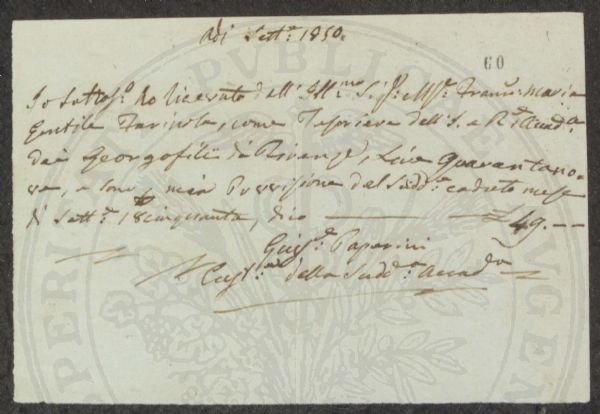 Adì Sett.e 1850.
60
Io Sottos.o ho ricevuto dall' Ill.mo Sig.r M.se Franc.o Maria
Gentile Farinola, come Tesoriere dell' I. e R. Accad.a
dei Georgofili di Firenze, Lire Quarantano-
ve, e sono p mia Provvisione del Sudd.o caduto mese
di Sett.e 18cinquanta, dico £49.--
Giu.e Paperini
Cust.e della Sudd.a Accad.a
PUBLICAE